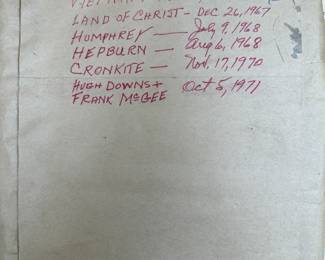 LAND OF CHRIST - DEC 26, 1967
HUMPHREY — July 9, 1968
HEPBURN — Aug 6, 1968
CRONKITE — Nov. 17, 1970
HUGH DOWNS + FRANK McGEE Oct 5, 1971